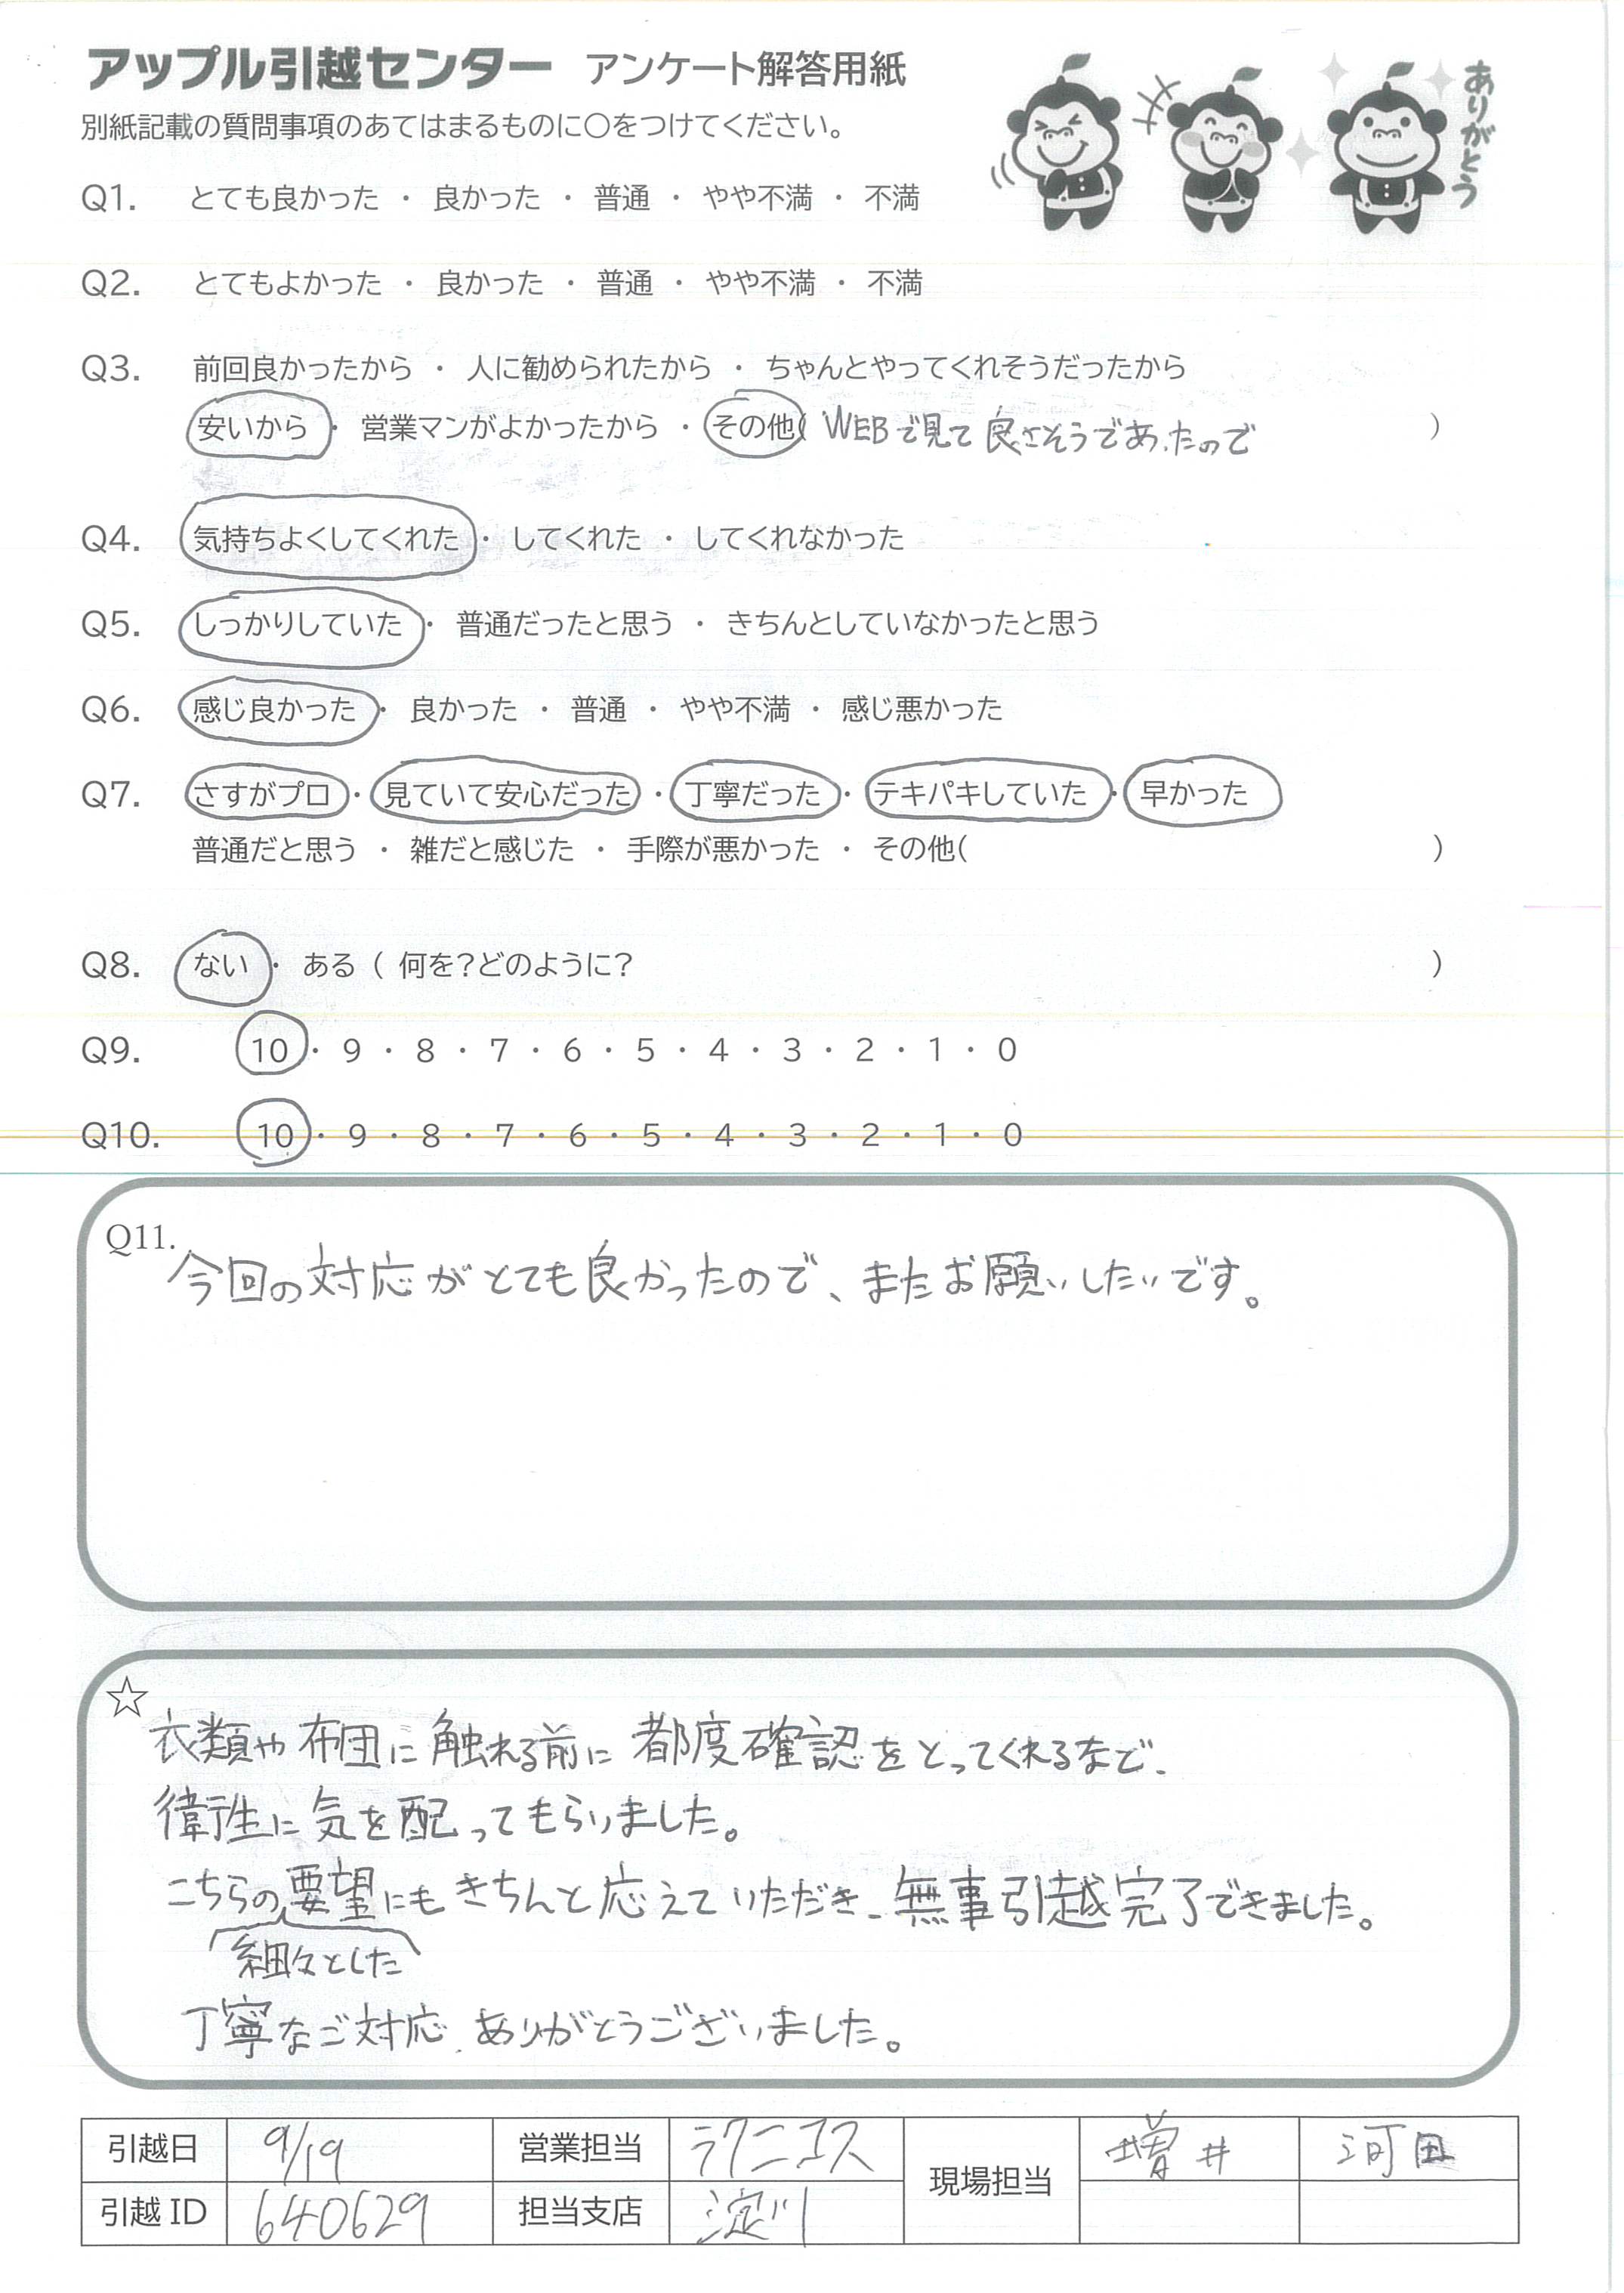 アップル引越センター アンケート解答用紙
別紙記載の質問事項のあてはまるものに〇をつけてください。
ありがとう
Q1. とても良かった ・ 良かった ・ 普通 ・ やや不満 ・ 不満
Q2. とてもよかった ・ 良かった ・ 普通 ・ やや不満 ・ 不満
Q3. 前回良かったから ・ 人に勧められたから ・ ちゃんとやってくれそうだったから
安いから ・ 営業マンがよかったから ・ その他( WEBで見て良さそうであったので )
Q4. 気持ちよくしてくれた ・ してくれた ・ してくれなかった
Q5. しっかりしていた ・ 普通だったと思う ・ きちんとしていなかったと思う
Q6. 感じ良かった ・ 良かった ・ 普通 ・ やや不満 ・ 感じ悪かった
Q7. さすがプロ ・ 見ていて安心だった ・ 丁寧だった ・ テキパキしていた ・ 早かった
普通だと思う ・ 雑だと感じた ・ 手際が悪かった ・ その他( )
Q8. ない ・ ある ( 何を?どのように? )
Q9. 10 ・ 9 ・ 8 ・ 7 ・ 6 ・ 5 ・ 4 ・ 3 ・ 2 ・ 1 ・ 0
Q10. 10 ・ 9 ・ 8 ・ 7 ・ 6 ・ 5 ・ 4 ・ 3 ・ 2 ・ 1 ・ 0
Q11.
今回の対応がとても良かったので、またお願いしたいです。
☆
衣類や布団に触れる前に都度確認をとってくれるなど、
衛生に気を配ってもらいました。
こちらの要望にもきちんと応えていただき、無事引越完了できました。
細々とした
丁寧なご対応、ありがとうございました。
引越日 9/19 営業担当 ラクニコス 現場担当 増井 河田
引越 ID 640629 担当支店 淀川